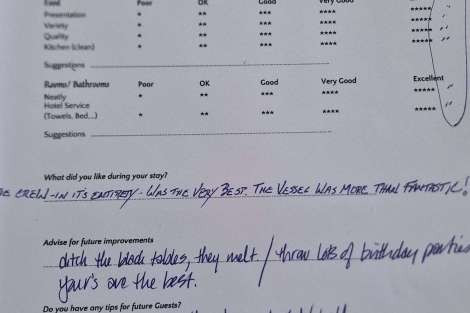 Food Poor OK Good Very Good
Presentation * ** *** **** *****
Variety * ** *** **** *****
Quality * ** *** **** *****
Kitchen (clean) * ** *** **** *****
Suggestions
Rooms/ Bathrooms Poor OK Good Very Good Excellent
Neatly * ** *** **** *****
Hotel Service
(Towels, Bed...) * ** *** **** *****
Suggestions
What did you like during your stay?
CREW-IN ITS ENTIRETY- WAS THE VERY BEST. THE VESSEL WAS MORE THAN FANTASTIC!
Advise for future improvements
ditch the black tables, they melt / throw lots of birthday parties
your's are the best.
Do you have any tips for future Guests?